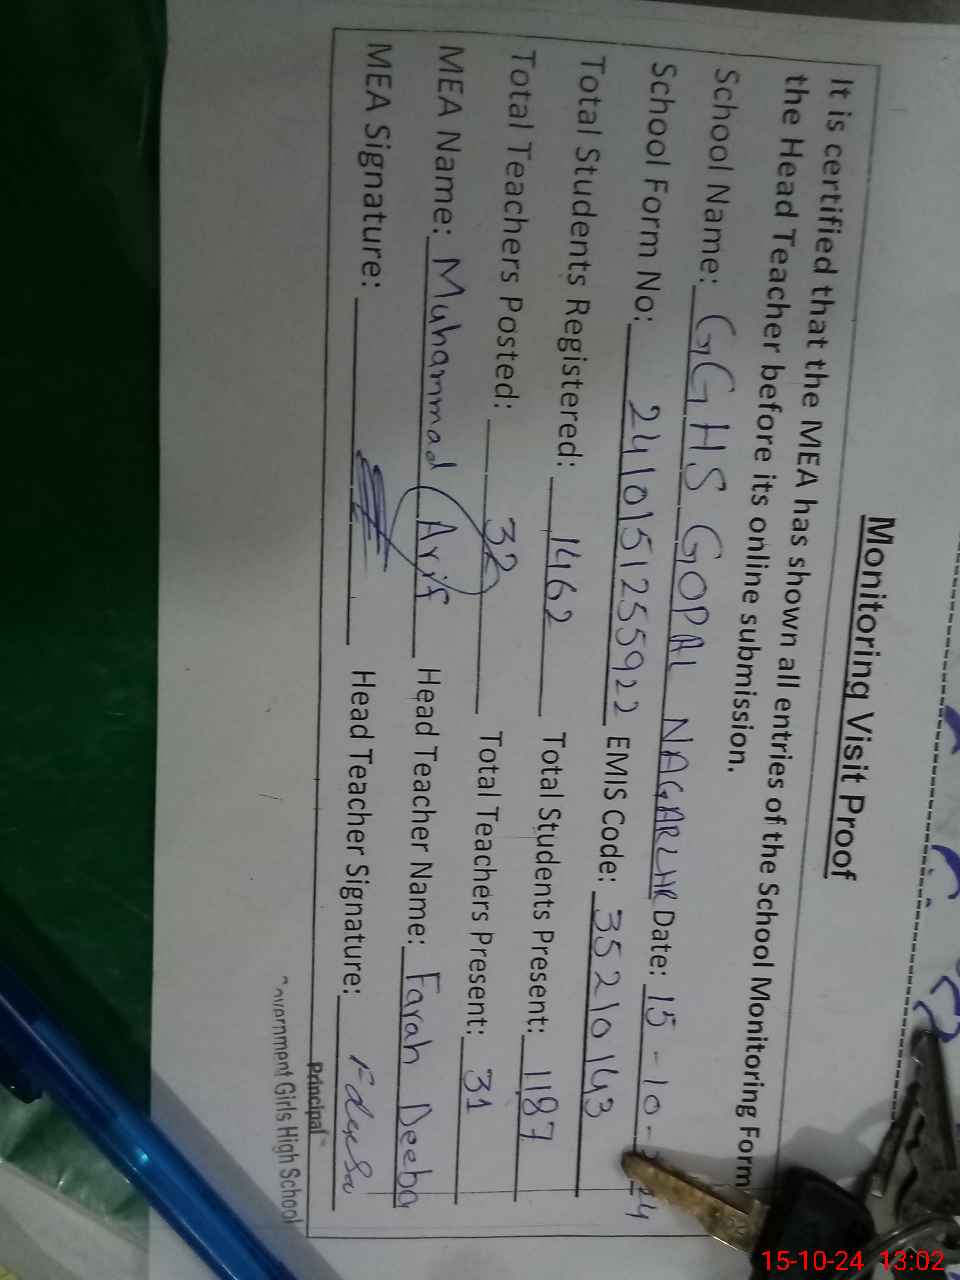 Monitoring Visit Proof
It is certified that the MEA has shown all entries of the School Monitoring Form
the Head Teacher before its online submission.
School Name: GGHS GOPAL NAGAR LHR Date: 15-10-24
School Form No: 2410151255922 EMIS Code: 35210143
Total Students Registered: 1462 Total Students Present: 1187
Total Teachers Posted: 32 Total Teachers Present: 31
MEA Name: Muhammad Arif Head Teacher Name: Farah Deeba
MEA Signature: Head Teacher Signature:
Principal
Government Girls High School
15-10-24 13:02